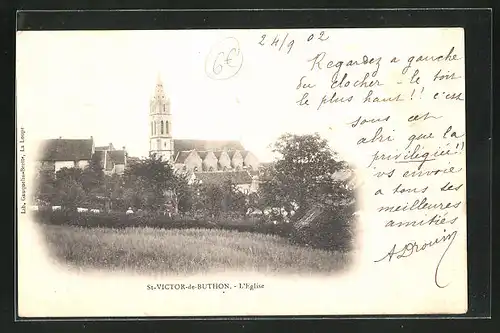 24/9 02
6€
Regardez a gauche
du clocher - le toit
le plus haut !! c'est
sous cet
abri que la
privilégiée !!
vs envoie
a tous ses
meilleures
amitiés
ADrouin
Lib. Gauquelin-Serée, La Loupe
St-VICTOR-de-BUTHON. - L'Eglise